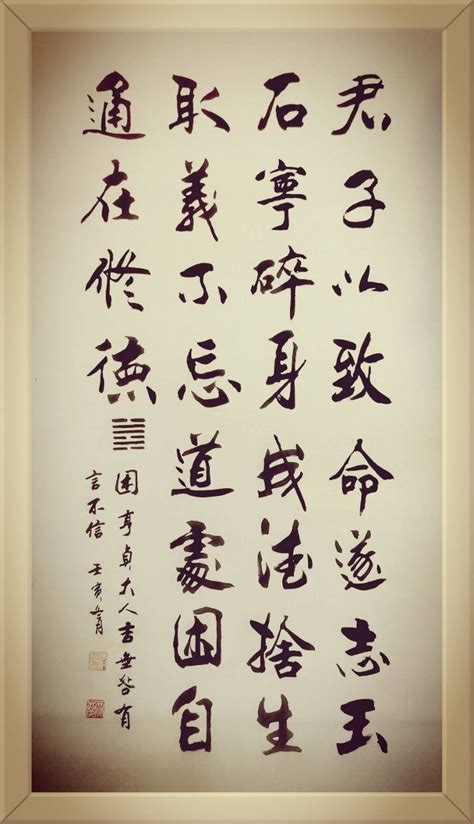 君子以致命遂志玉
石寧碎身成法捨生
取義不忘道處困自
通在修德
困亨貞大人吉無咎有
言不信 壬寅